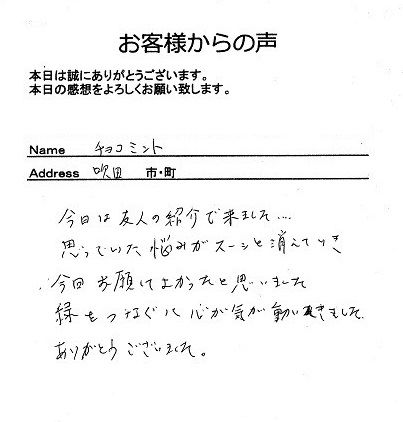 お客様からの声
本日は誠にありがとうございます。
本日の感想をよろしくお願い致します。
Name チョコミント
Address 吹田 市・町
今日は友人の紹介で来ました...
思っていた悩みがスーンと消えていき
今回お願してよかったと思いました
縁をつなぐ 心が気が動きました
ありがとうございました。